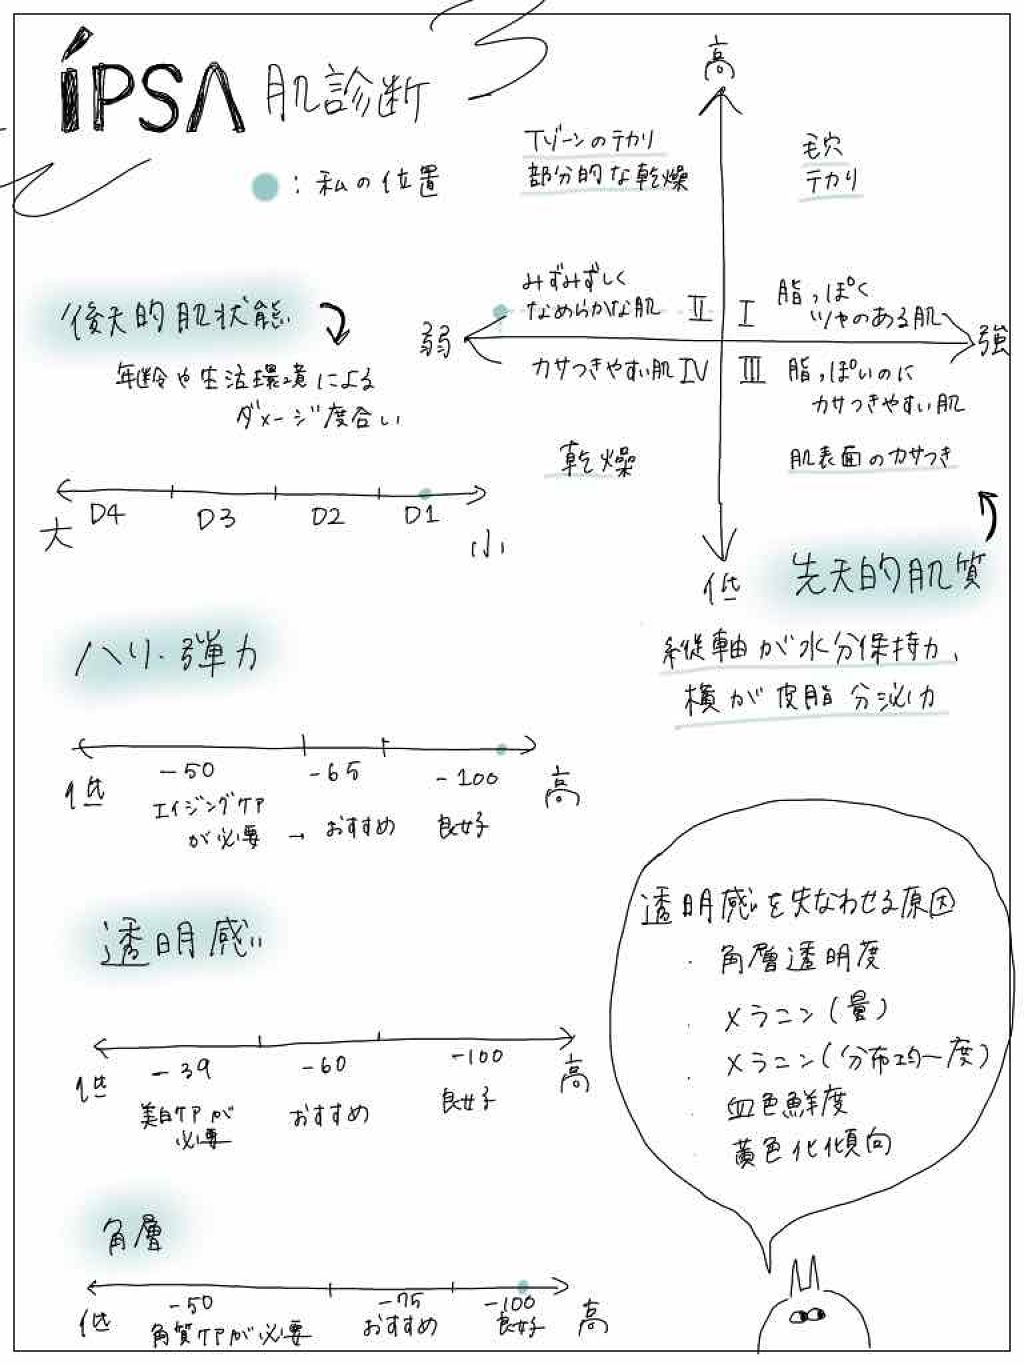 iPSA 肌診断
：私の位置
高
Tゾーンのテカリ
部分的な乾燥
毛穴
テカリ
みずみずしく
なめらかな肌
II
I
脂っぽく
ツヤのある肌
弱
強
カサつきやすい肌
IV
III
脂っぽいのに
カサつきやすい肌
乾燥
肌表面のカサつき
低
先天的肌質
縦軸が水分保持力、
横が皮脂分泌力
後天的肌状態
年齢や生活環境による
ダメージ度合い
D4 D3 D2 D1
大
小
ハリ・弾力
低 -50 -65 -100 高
エイジングケア
が必要 → おすすめ 良好
透明感
低 -39 -60 -100 高
美白ケアが
必要
おすすめ
良好
透明感を失なわせる原因
・角層透明度
・メラニン(量)
・メラニン(分布均一度)
・血色鮮度
・黄色化傾向
角層
低 -50 -75 -100 高
角質ケアが必要 おすすめ 良好